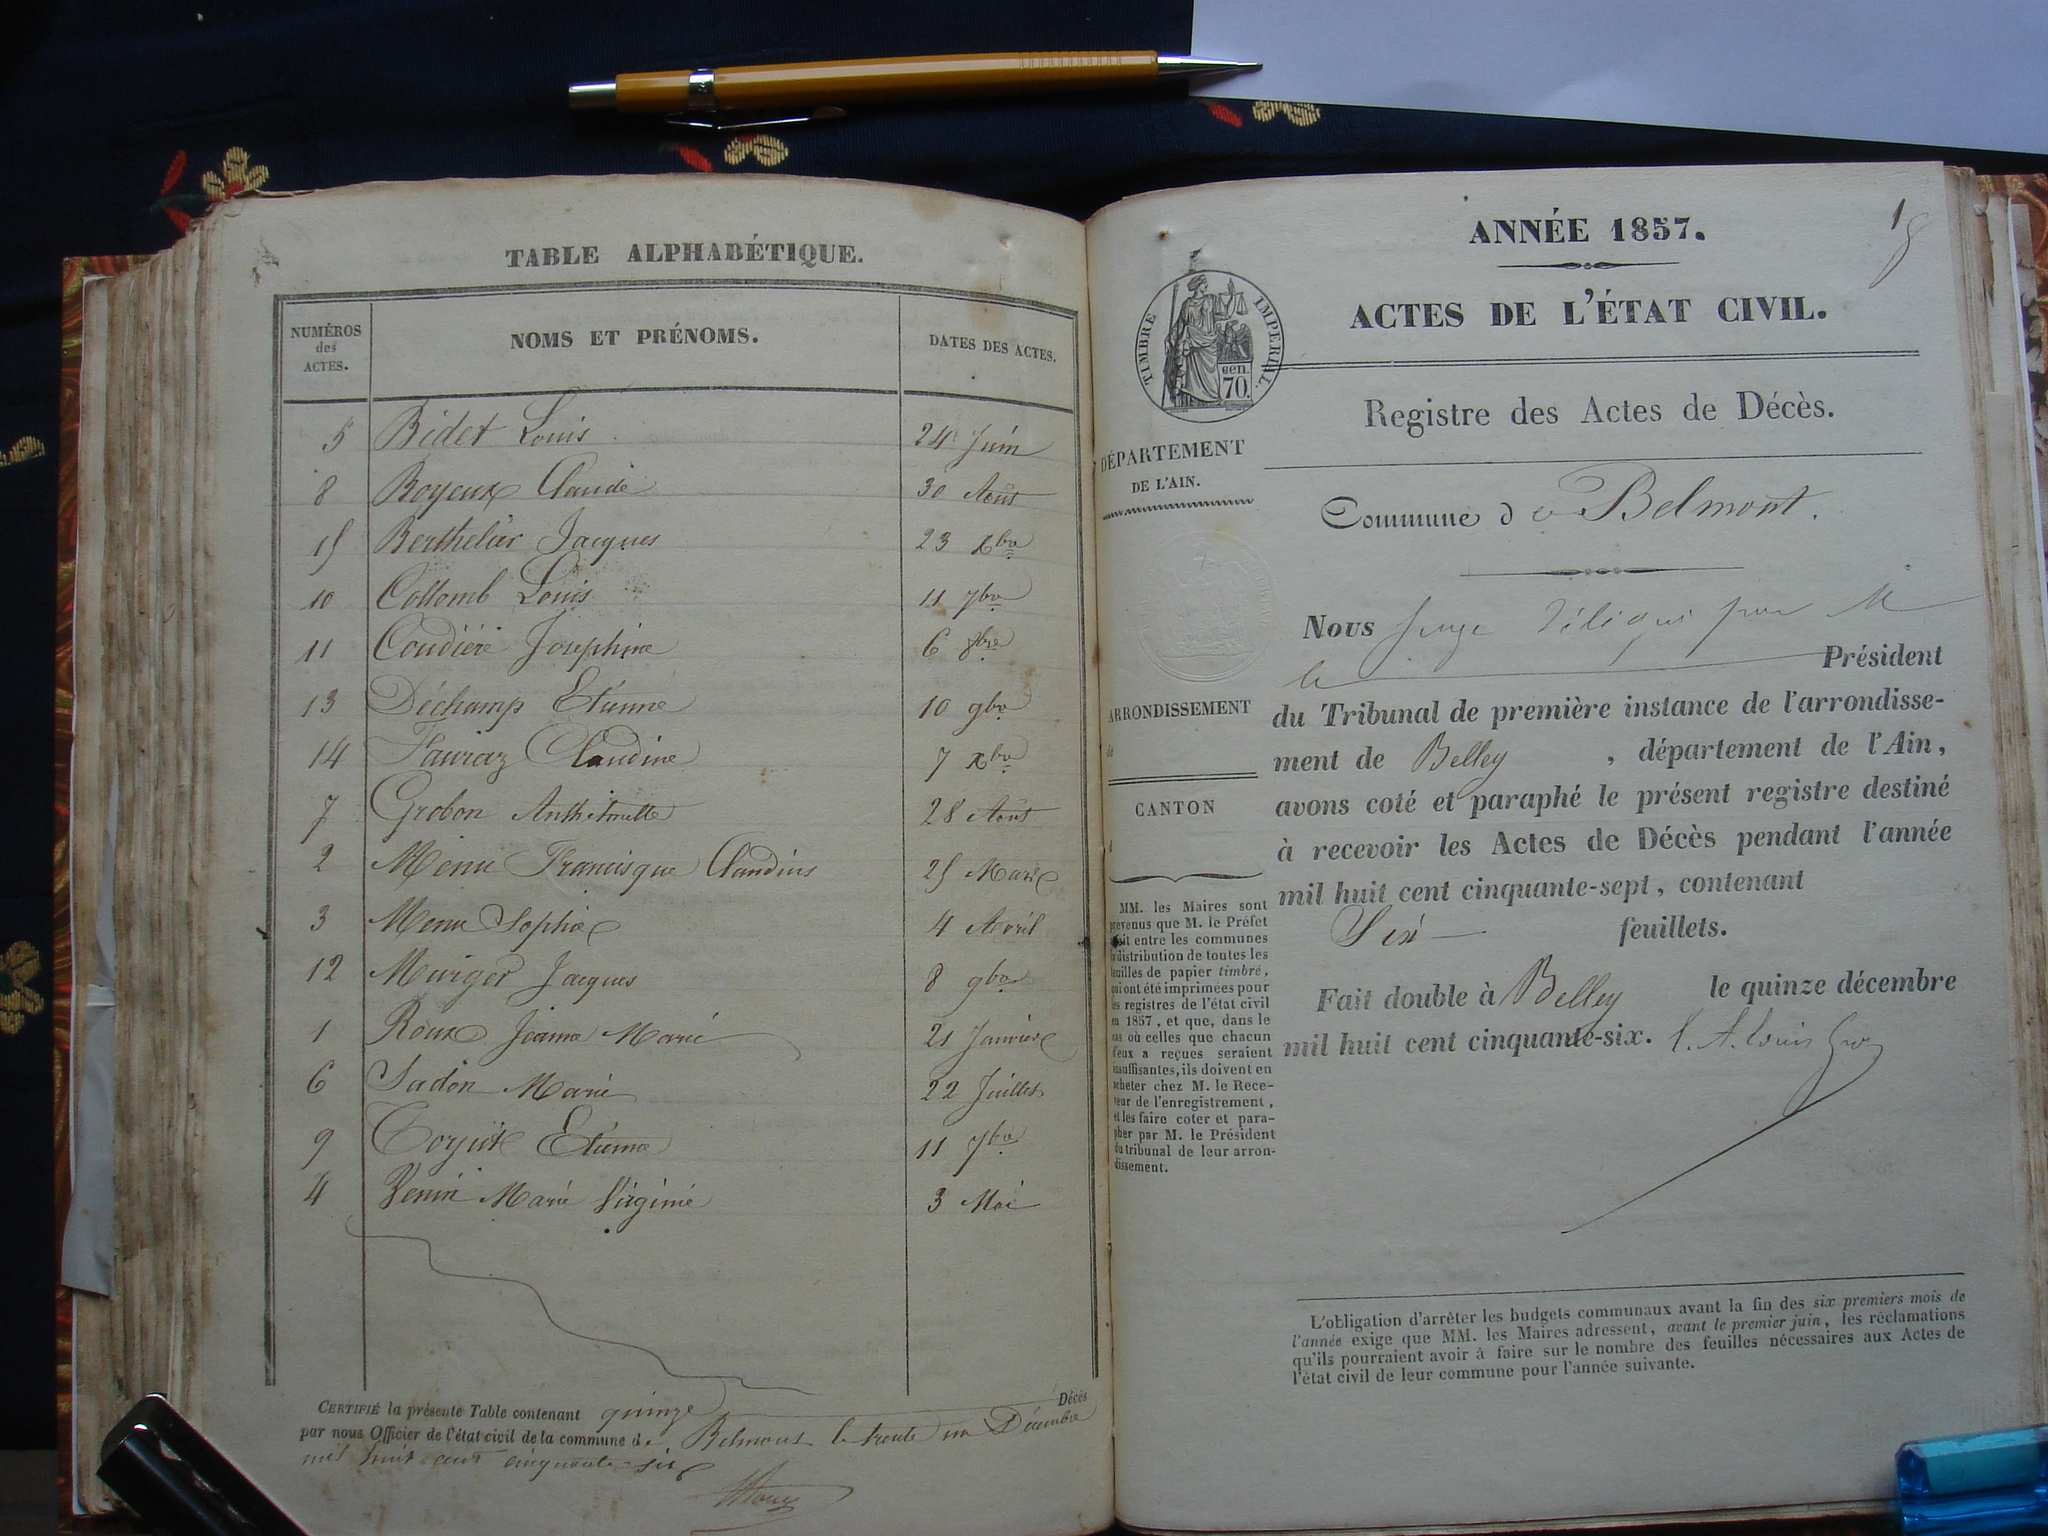 TABLE ALPHABÉTIQUE.
NUMÉROS des ACTES. NOMS ET PRÉNOMS. DATES DES ACTES.
5 Bidet Louis 24 Juin
8 Boyeux Claude 30 Août
15 Berthelier Jacques 23 Xbre
10 Collomb Louis 11 7bre
11 Coudière Josephine 6 8bre
13 Déchamp Etienne 10 9bre
14 Favraz Claudine 7 Xbre
7 Grobon Anthelmette 28 Août
2 Menu Francisque Claudius 25 Mars
3 Menu Sophie 4 Avril
12 Muiger Jacques 8 9bre
1 Roux Jeanne Marie 21 Janvier
6 Sadon Marie 22 Juillet
9 Etienne 11 7bre
4 Venin Marie Virginie 3 Mai
CERTIFIÉ la présente Table contenant quinze Décès
par nous Officier de l'état civil de la commune de Belmont le trente un Décembre
mil huit cent cinquante-six
1
ANNÉE 1857.
ACTES DE L'ÉTAT CIVIL.
TIMBRE IMPERIAL.
cen.
70.
Registre des Actes de Décès.
DÉPARTEMENT
DE L'AIN.
Commune de Belmont.
Nous Juge délégué par M
le Président
ARRONDISSEMENT
de
CANTON
d
du Tribunal de première instance de l'arrondisse-
ment de Belley, département de l'Ain,
avons coté et paraphé le présent registre destiné
à recevoir les Actes de Décès pendant l'année
mil huit cent cinquante-sept, contenant
Six feuillets.
Fait double à Belley le quinze décembre
mil huit cent cinquante-six.
MM. les Maires sont
prévenus que M. le Préfet
fait entre les communes
la distribution de toutes les
feuilles de papier timbré,
qui ont été imprimées pour
les registres de l'état civil
en 1857, et que, dans le
cas où celles que chacun
d'eux a reçues seraient
insuffisantes, ils doivent en
acheter chez M. le Rece-
veur de l'enregistrement,
et les faire coter et para-
pher par M. le Président
du tribunal de leur arron-
dissement.
L'obligation d'arrêter les budgets communaux avant la fin des six premiers mois de
l'année exige que MM. les Maires adressent, avant le premier juin, les réclamations
qu'ils pourraient avoir à faire sur le nombre des feuilles nécessaires aux Actes de
l'état civil de leur commune pour l'année suivante.